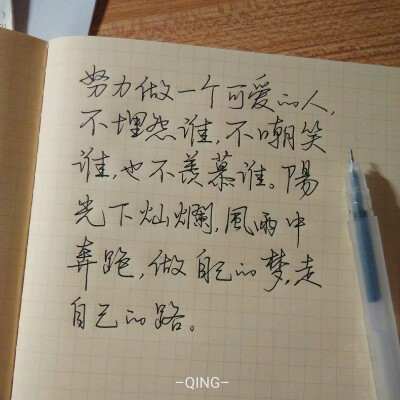 努力做一个可爱的人,
不埋怨谁,不嘲笑
谁,也不羡慕谁。陽
光下灿爛,風雨中
奔跑,做自己的梦,走
自己的路。
-QING-